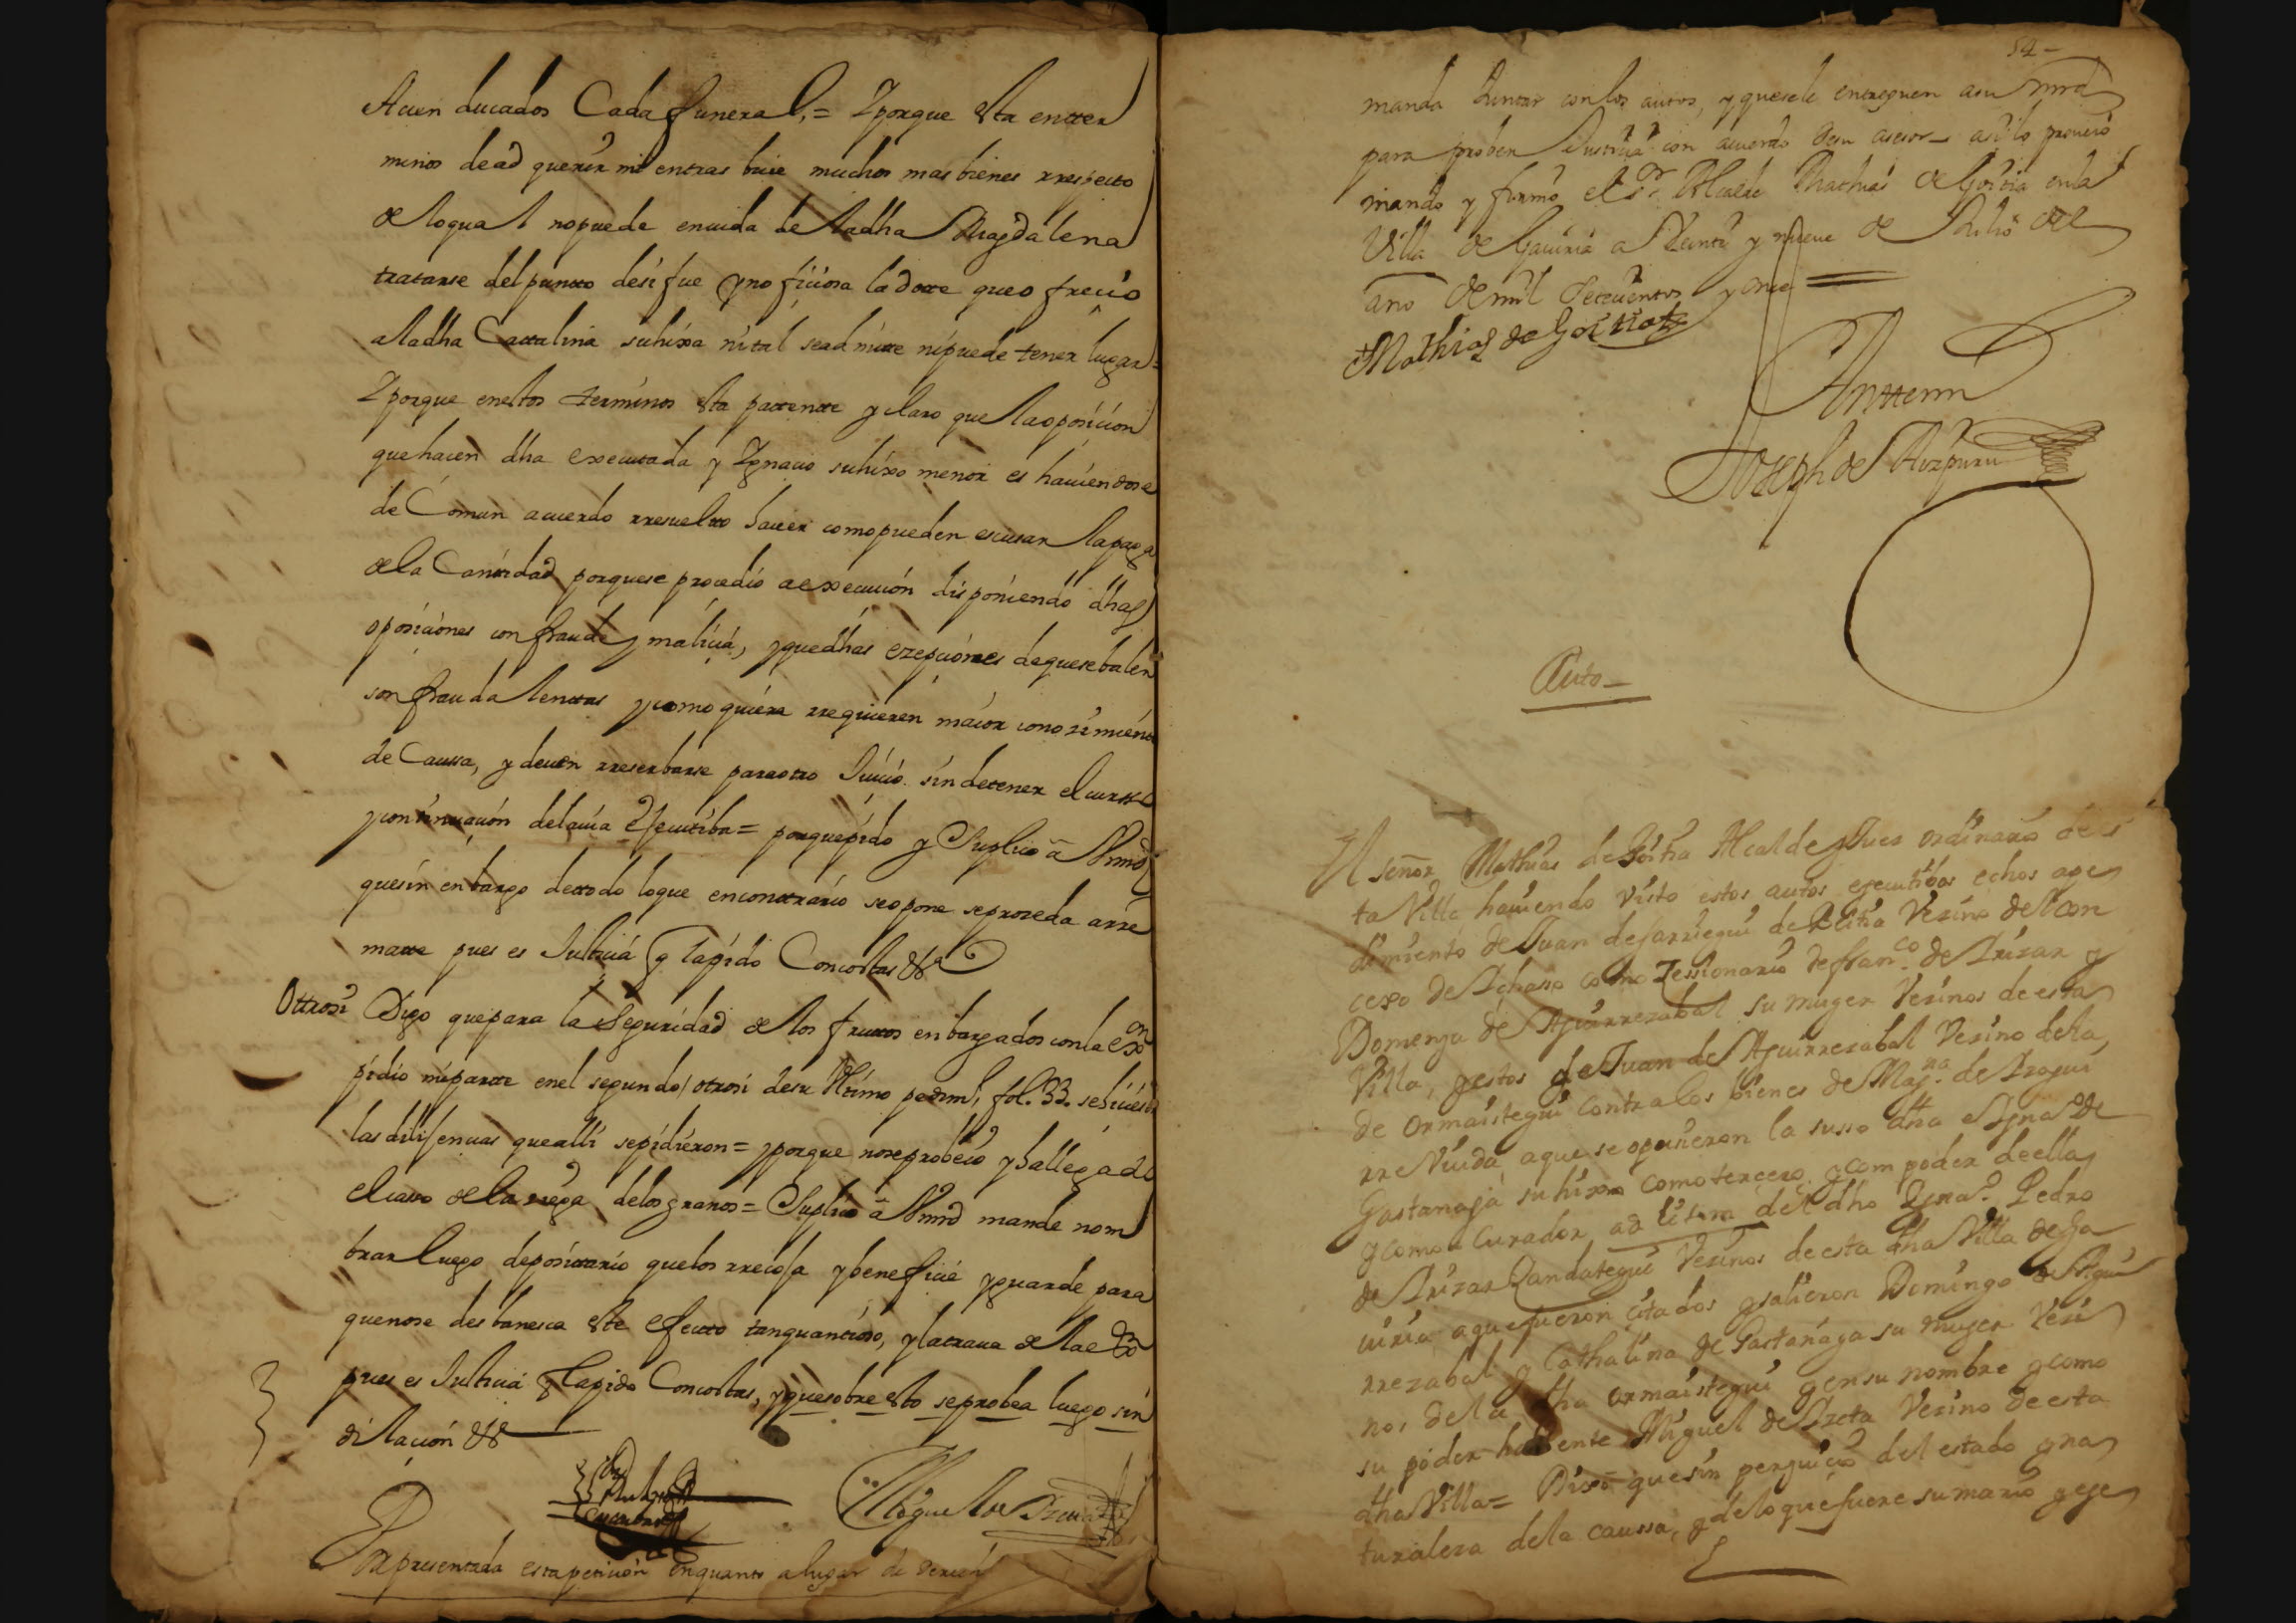 A cien ducados Cada funeral, = Y porque esta en ter
minos de ad querir mi entras biue muchos mas bienes rrespecto
de lo qual no puede en uida de la dha Magdalena
tratarse del punto de si fue ynoficiosa la dotte que ofrecio
a la dha Cattalina su hixa ni tal se admite ni puede tener lugar =
Y porque en estos terminos esta pattente y claro que la oposicion
que hacen dha executada y Ygnacio su hixo menor es hauiendose
de Comun acuerdo rresuelto hacer como pueden escusar la paga
de la Cantidad porque se procedió a execucion disponiendo dhas
oposiciones con fraude y malicia, y que dhas ezepciones de que se balen
son fraudalentas y como quiera rrequieren maior conozimiento
de Caussa, y deuen rreserbarse para otro Juicio sin detener el curso
y continuacion de la uia Efecutiba = por que pido y Suplico a Vmd
que sin enbargo de todo lo que en contrario se opone se prozeda a rre
matte pues es Justicia q la pido Con costas &a
Ottrosi Digo que para la Seguridad de los fruttos enbargados con la exon
pidio mi partte en el segundo otrosi de su Ultimo pedimto, fol. 33. se hiciesen
las dilifencias que alli se pidieron = y porque no se probeio y ha llegado
el casso de la siega de los granos = Suplico a Vmd mande nom
brar luego deposittario que los rrecofa y beneficie y guarde para
que no se desbanesca este efectto tan quantioso, y la traua de la exon
pues es Justicia q la pido Con costas, y que sobre esto se probea luego sin
dilacion &a
Miguel de Yrcueta
Presentada esta peticion en quanto a lugar de derecho
54 –
manda Juntar con los autos, y que se le entreguen a su mrd
para prober Justicia con acuerdo de su asesor – asi lo proueio
mando y firmo el Sr. Alcalde Mathias de Goitia en la
Villa de Gauiria a Veinte y nueve de Julio del
año de mil Setecientos y once =
Mathias de Goitia
Antte mi
Joseph de Aizpuru
Auto –
El señor Mathias de Goitia Alcalde y Juez ordinario de es
ta Villa hauiendo visto estos autos ejecutibos echos a pe
dimiento de Juan de Sarriegui de Vezino del con
cexo de Ichaso como Zessionario de Franco. de Irizar y
Domenja de Aguirrezabal su muger Vezinos de esta
Villa, y estos de Juan de Aguirrezabal Vezino de la
de Ormaistegui contra los bienes de Magna. de
rre Viuda, a que se opusieron la susso dha e Ygnao de
Gastanaga su hixo como tercero, y com poder de ella
y como Curador ad litem del dho Ygnao. Pedro
de Irizar Vezinos de esta dha Villa de Ga
uiria, a que fueron citados y salieron Domingo de Agui
rrezabal y Cathalina de Gastañaga su muger Vezi
nos de la dha Ormaistegui y en su nombre y como
su poder haviente Miguel de Vezino de esta
dha Villa = Dixo que sin perjuicio del estado y na
turaleza de la caussa, y de lo que fuere sumario y eje